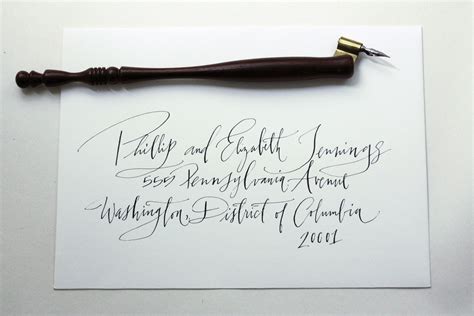 Phillip and Elizabeth Jennings
555 Pennsylvania Avenue
Washington, District of Columbia
20001